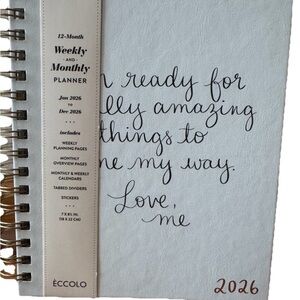 12-Month
Weekly
AND
Monthly
PLANNER
Jan 2026
TO
Dec 2026
includes
WEEKLY
PLANNING PAGES
MONTHLY
OVERVIEW PAGES
MONTHLY & WEEKLY
CALENDARS
TABBED DIVIDERS
STICKERS
7 X 8½ IN.
(18 X 22 CM)
ÉCCOLO
ready for
amazing
things to
me my way.
Love,
me
2026